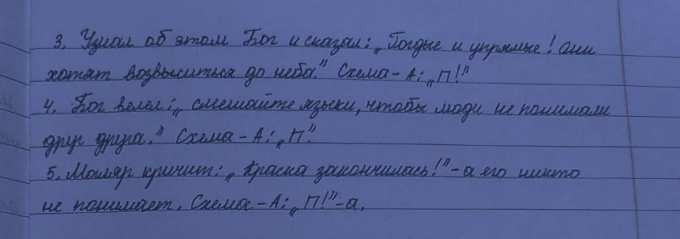 3. Узнал об этом Бог и сказал: „Гордые и упрямые! Они
хотят возвыситься до неба." Схема – А: „П!"
4. Бог велел: „ смешайте языки, чтобы люди не понимали
друг друга." Схема – А: „П".
5. Маляр кричит: „ Краска закончилась!" – а его никто
не понимает. Схема – А: „П!" – а.